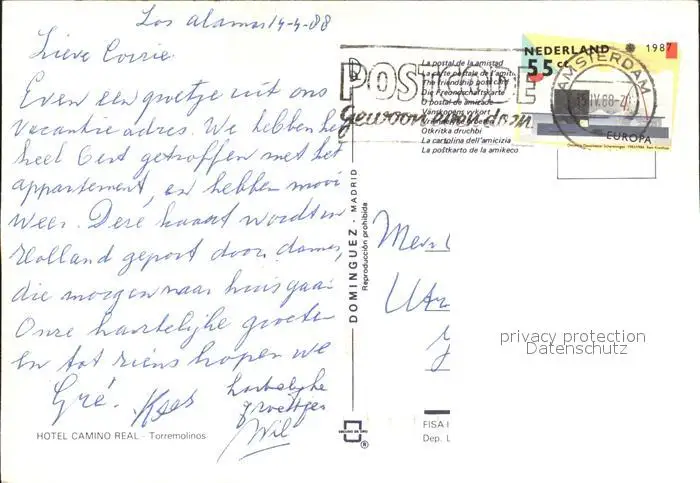 Los alamos 14-4-88
Lieve Corrie.
Even een groetje uit ons
vacantie adres. We hebben het
heel best getroffen met het
appartement, en hebben mooi
weer. Deze kaart wordt in
Holland gepost door dames,
die morgen naar huis gaan
Onze hartelijke groeten
en tot ziens hopen we
Gré. Kees
hartelijke
groetjes
Wil
HOTEL CAMINO REAL - Torremolinos
DOMINGUEZ - MADRID
Reproducción prohibida
La postal de la amistad
La carte postale de l'amiti
The friendship post card
Die Freundschaftskarte
O postal de amizade
Vänskapens vykort
Otkritka druchbi
La cartolina dell'amicizia
La poŝtkarto de la amikeco
POSTCODE
Gewoon doen
NEDERLAND 1987
55 c
EUROPA
AMSTERDAM
IV.88
Utr
privacy protection
Datenschutz
FISA
Dep. L
®